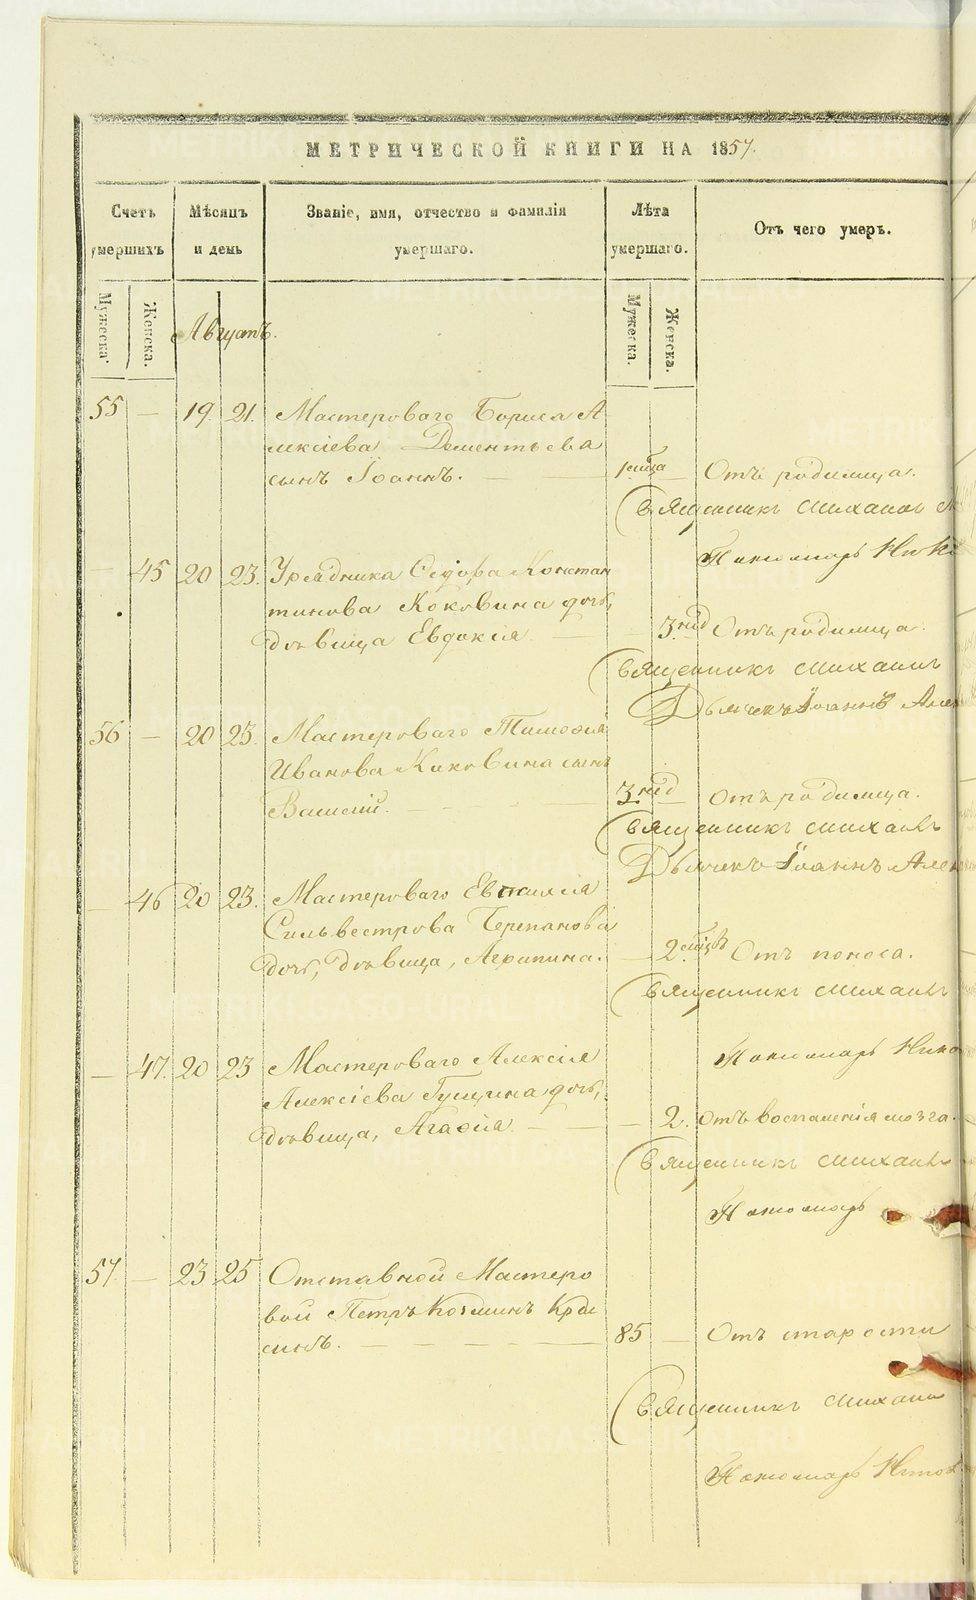 МЕТРИЧЕСКОЙ КНИГИ НА 1857.
Счетъ умершихъ
Мѣсяцъ и день
Званіе, имя, отчество и фамилія умершаго.
Лѣта умершаго.
Отъ чего умеръ.
Мужеска.
Женска.
Мужеска.
Женска.
Августъ.
55 — 19. 21. Мастероваго Бориса А
лексіева Дементьева
сынъ Іоаннъ. — — 1 мсца — Отъ родимца.
Священникъ Михаилъ
Пономарь
— 45 20 23. Урядника Ѳедора Констан
тинова Коковина дочь,
дѣвица Евдокія — — 3 нед Отъ родимца.
Священникъ Михаилъ
Дьячекъ Іоаннъ
56 — 20 23. Мастероваго Тимоѳея
Иванова Коковина сынъ
Василій. — — 3 нед — Отъ родимца.
Священникъ Михаилъ
Дьячекъ Іоаннъ
— 46 20 23. Мастероваго
Сильвестрова Черепанова
дочь, дѣвица, Агрипина. — 2 мсцвъ Отъ поноса.
Священникъ Михаилъ
Пономарь
— 47. 20 23 Мастероваго Алексія
Алексіева Гущина дочь,
дѣвица, Агаѳія — — — 2. Отъ воспаленія мозга.
Священникъ Михаилъ
Пономарь
57. — 23 25 Отставной Мастеро
вой Петръ Козминъ
85 — Отъ старости
Священникъ Михаил
Пономарь
METRIKI.GASO-URAL.RU